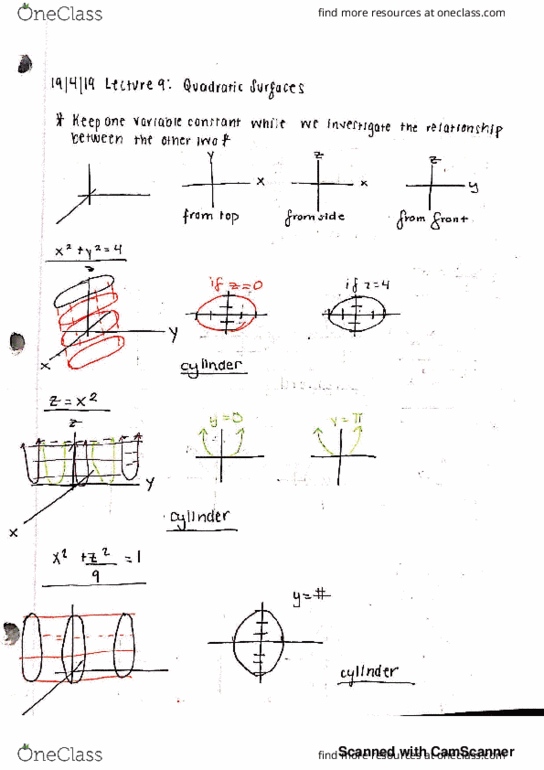 OneClass
find more resources at oneclass.com
19/4/19 Lecture 9: Quadratic Surfaces
* Keep one variable constant while we investigate the relationship
between the other two *
y
x
from top
z
x
from side
z
y
from front
x² + y² = 4
z
y
x
if z=0
if z=4
cylinder
z = x²
z
y
x
y=0
y=π
cylinder
x² + z²/9 = 1
y=#
cylinder
OneClass
find more resources at oneclass.com
Scanned with CamScanner